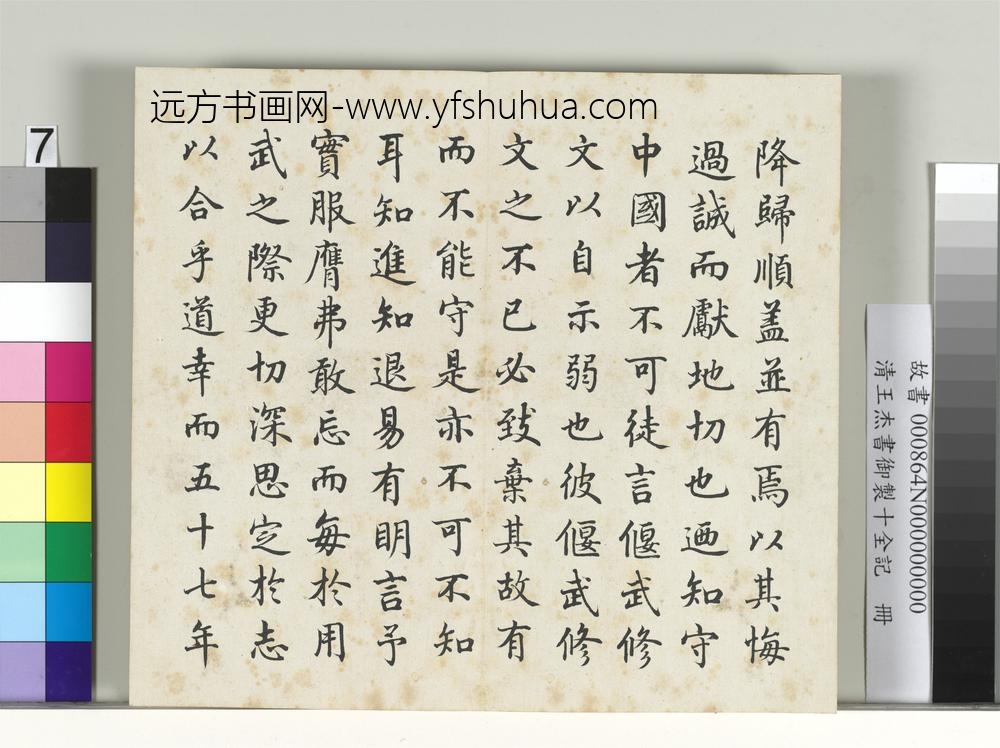 远方书画网-www.yfshuhua.com
降歸順蓋並有焉以其悔
過誠而獻地切也迺知守
中國者不可徒言偃武修
文以自示弱也彼偃武修
文之不已必致棄其故有
而不能守是亦不可不知
耳知進知退易有明言予
實服膺弗敢忘而每於用
武之際更切深思定於志
以合乎道幸而五十七年
7
故書 000864N000000000
清王杰書御製十全記 冊